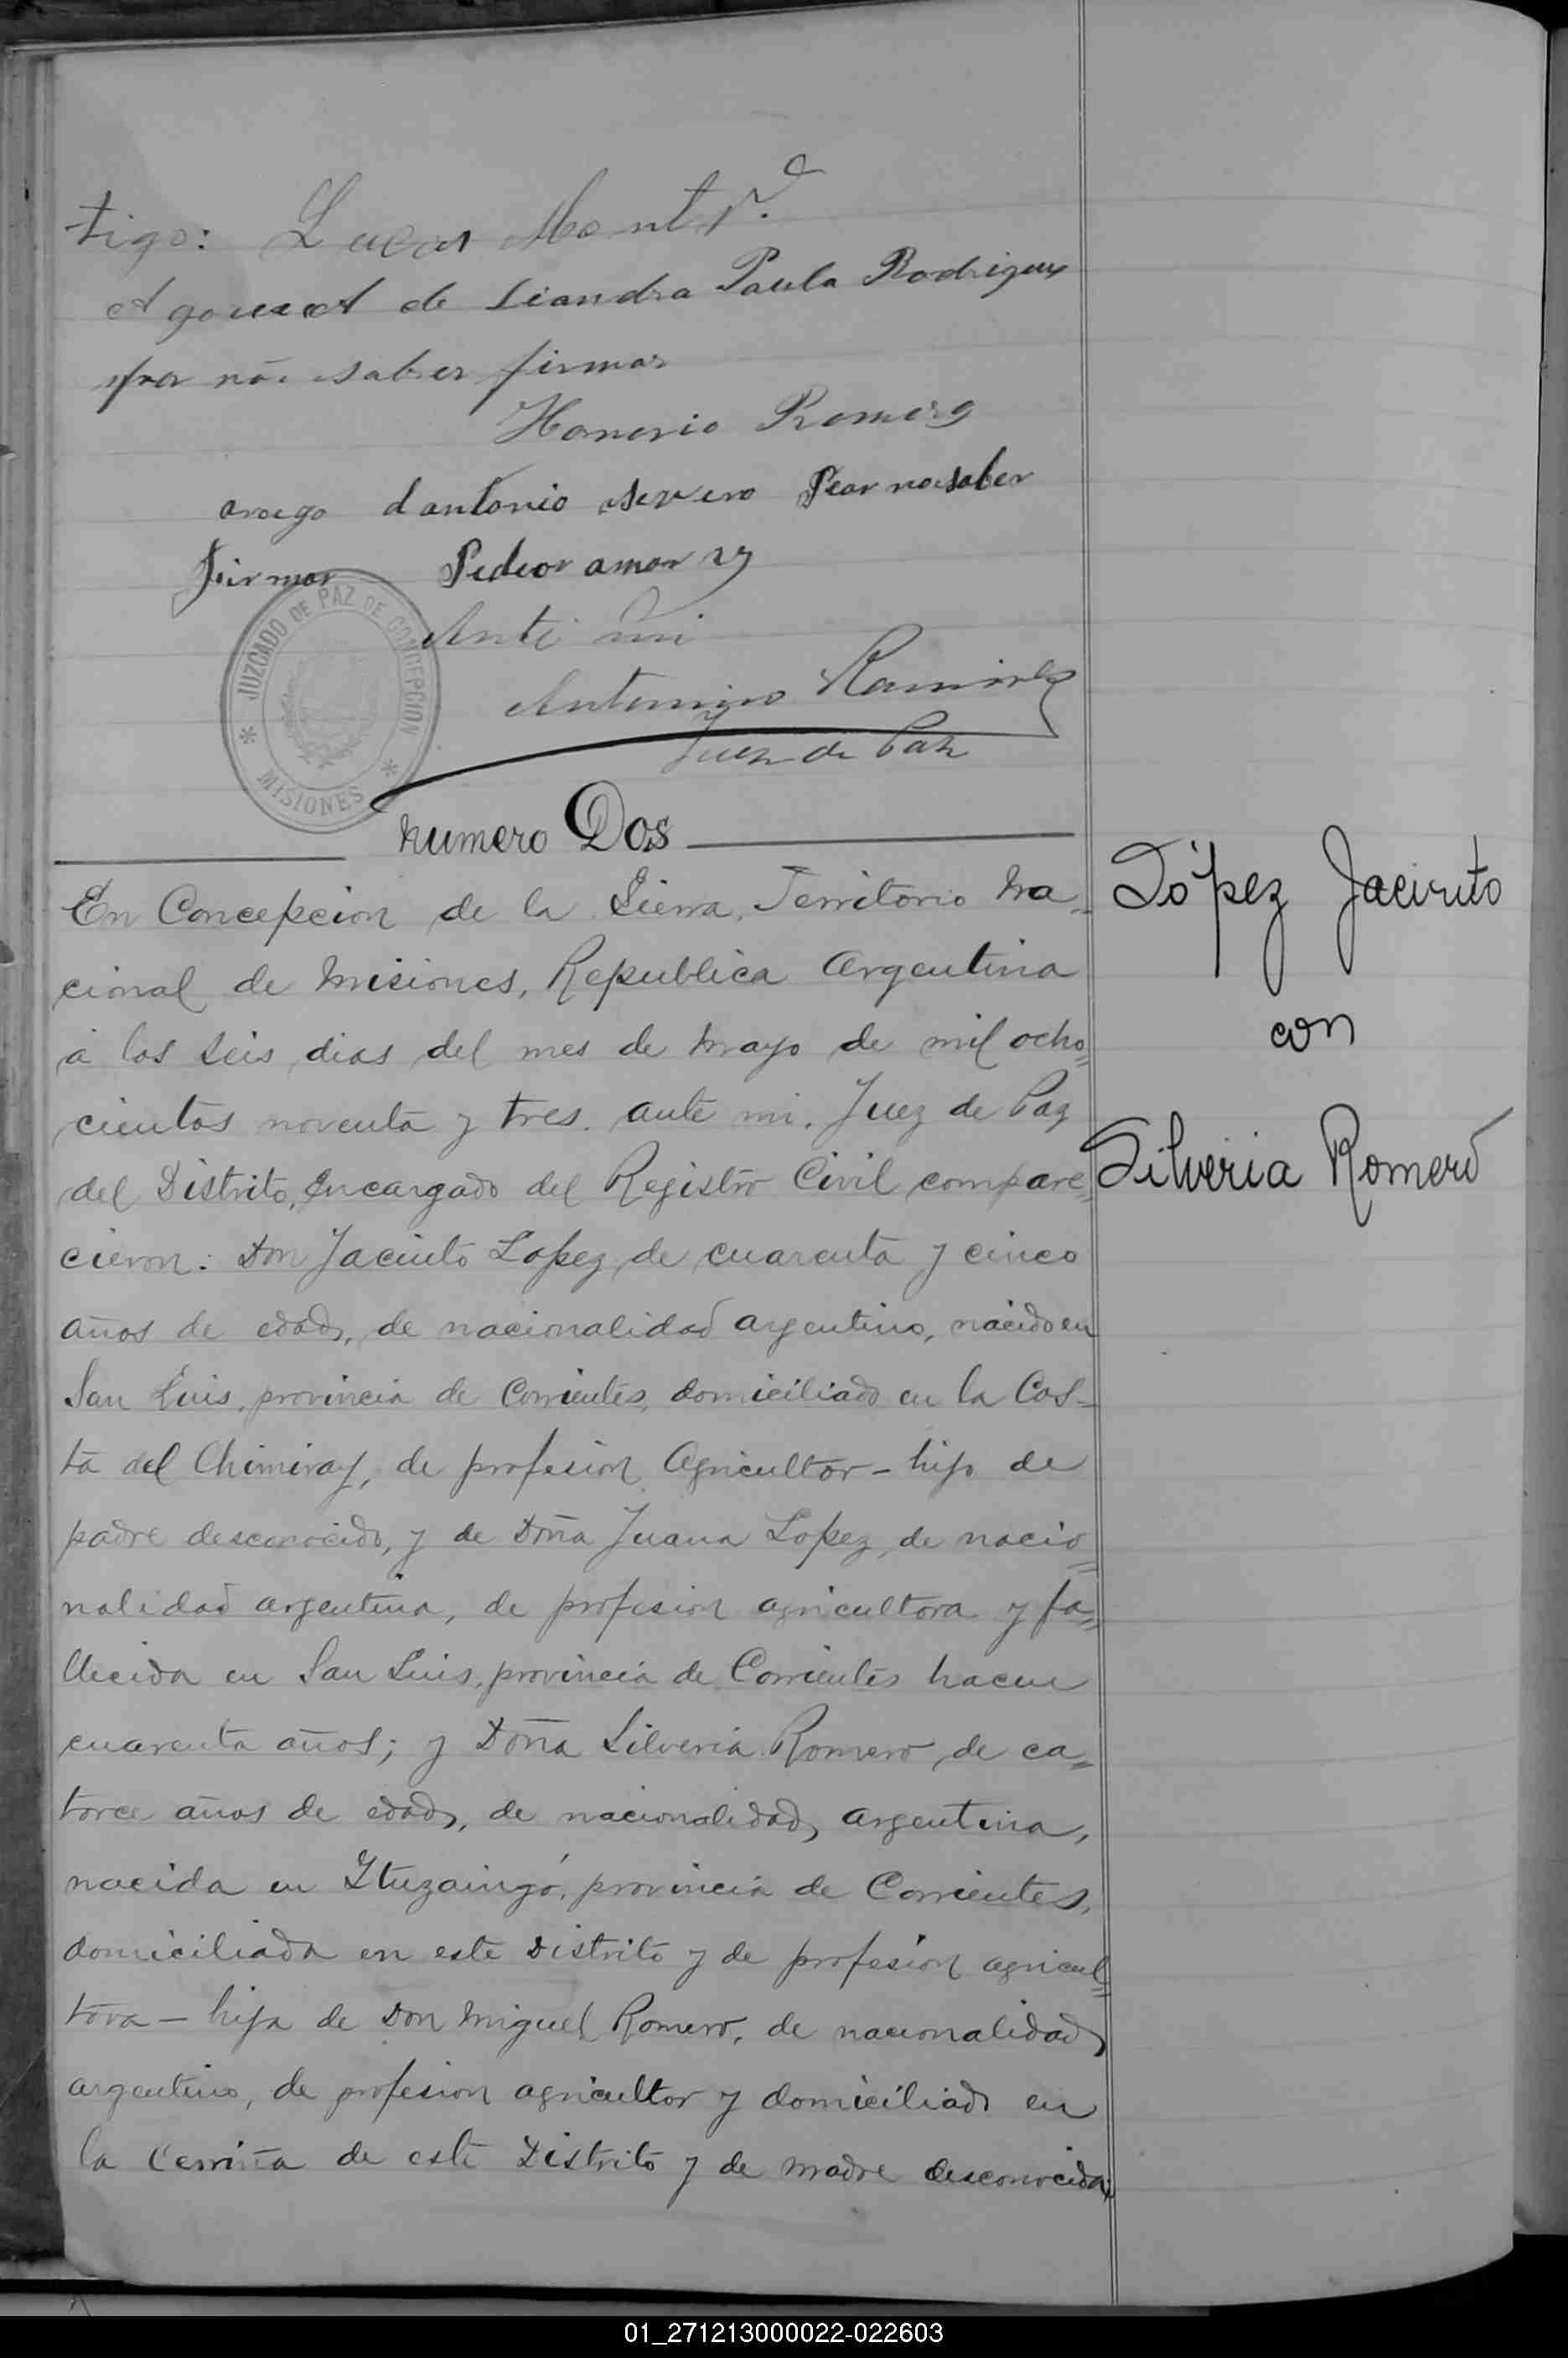 tigo: Lucas Mont
de Liandra Paula Rodriguez
por não saber firmar
Honorio Romero
arogo d antonio severo Pear no saber
firmar
JUZGADO DE PAZ DE CONCEPCION
* MISIONES *
Ante mi
Antonino Ramirez
Juez de Paz
Numero Dos
En Concepcion de la Sierra, Territorio Na-
cional de Misiones, Republica Argentina
á los seis dias del mes de Mayo de mil ocho=
cientos noventa y tres. ante mi, Juez de Paz
del Distrito, Encargado del Registro Civil compare=
cieron: Don Jacinto Lopez de cuarenta y cinco
años de edad, de nacionalidad argentino, nacido en
San Luis, provincia de Corrientes, domiciliado en la Cos-
ta del Chimiray, de profesion Agricultor - hijo de
padre desconocido, y de Doña Juana Lopez, de nacio=
nalidad argentina, de profesion agricultora y fa=
llecida en San Luis, provincia de Corrientes hacen
cuarenta años; y Doña Silveria Romero de ca=
torce años de edad, de nacionalidad, argentina,
nacida en Ytuzaingó, provincia de Corrientes,
domiciliada en este Distrito y de profesion agricul=
tora - hija de Don Miguel Romero, de nacionalidad
argentino, de profesion agricultor y domiciliado en
la de este Distrito y de madre desconocida;
López Jacinto
con
Silveria Romero
01_271213000022-022603